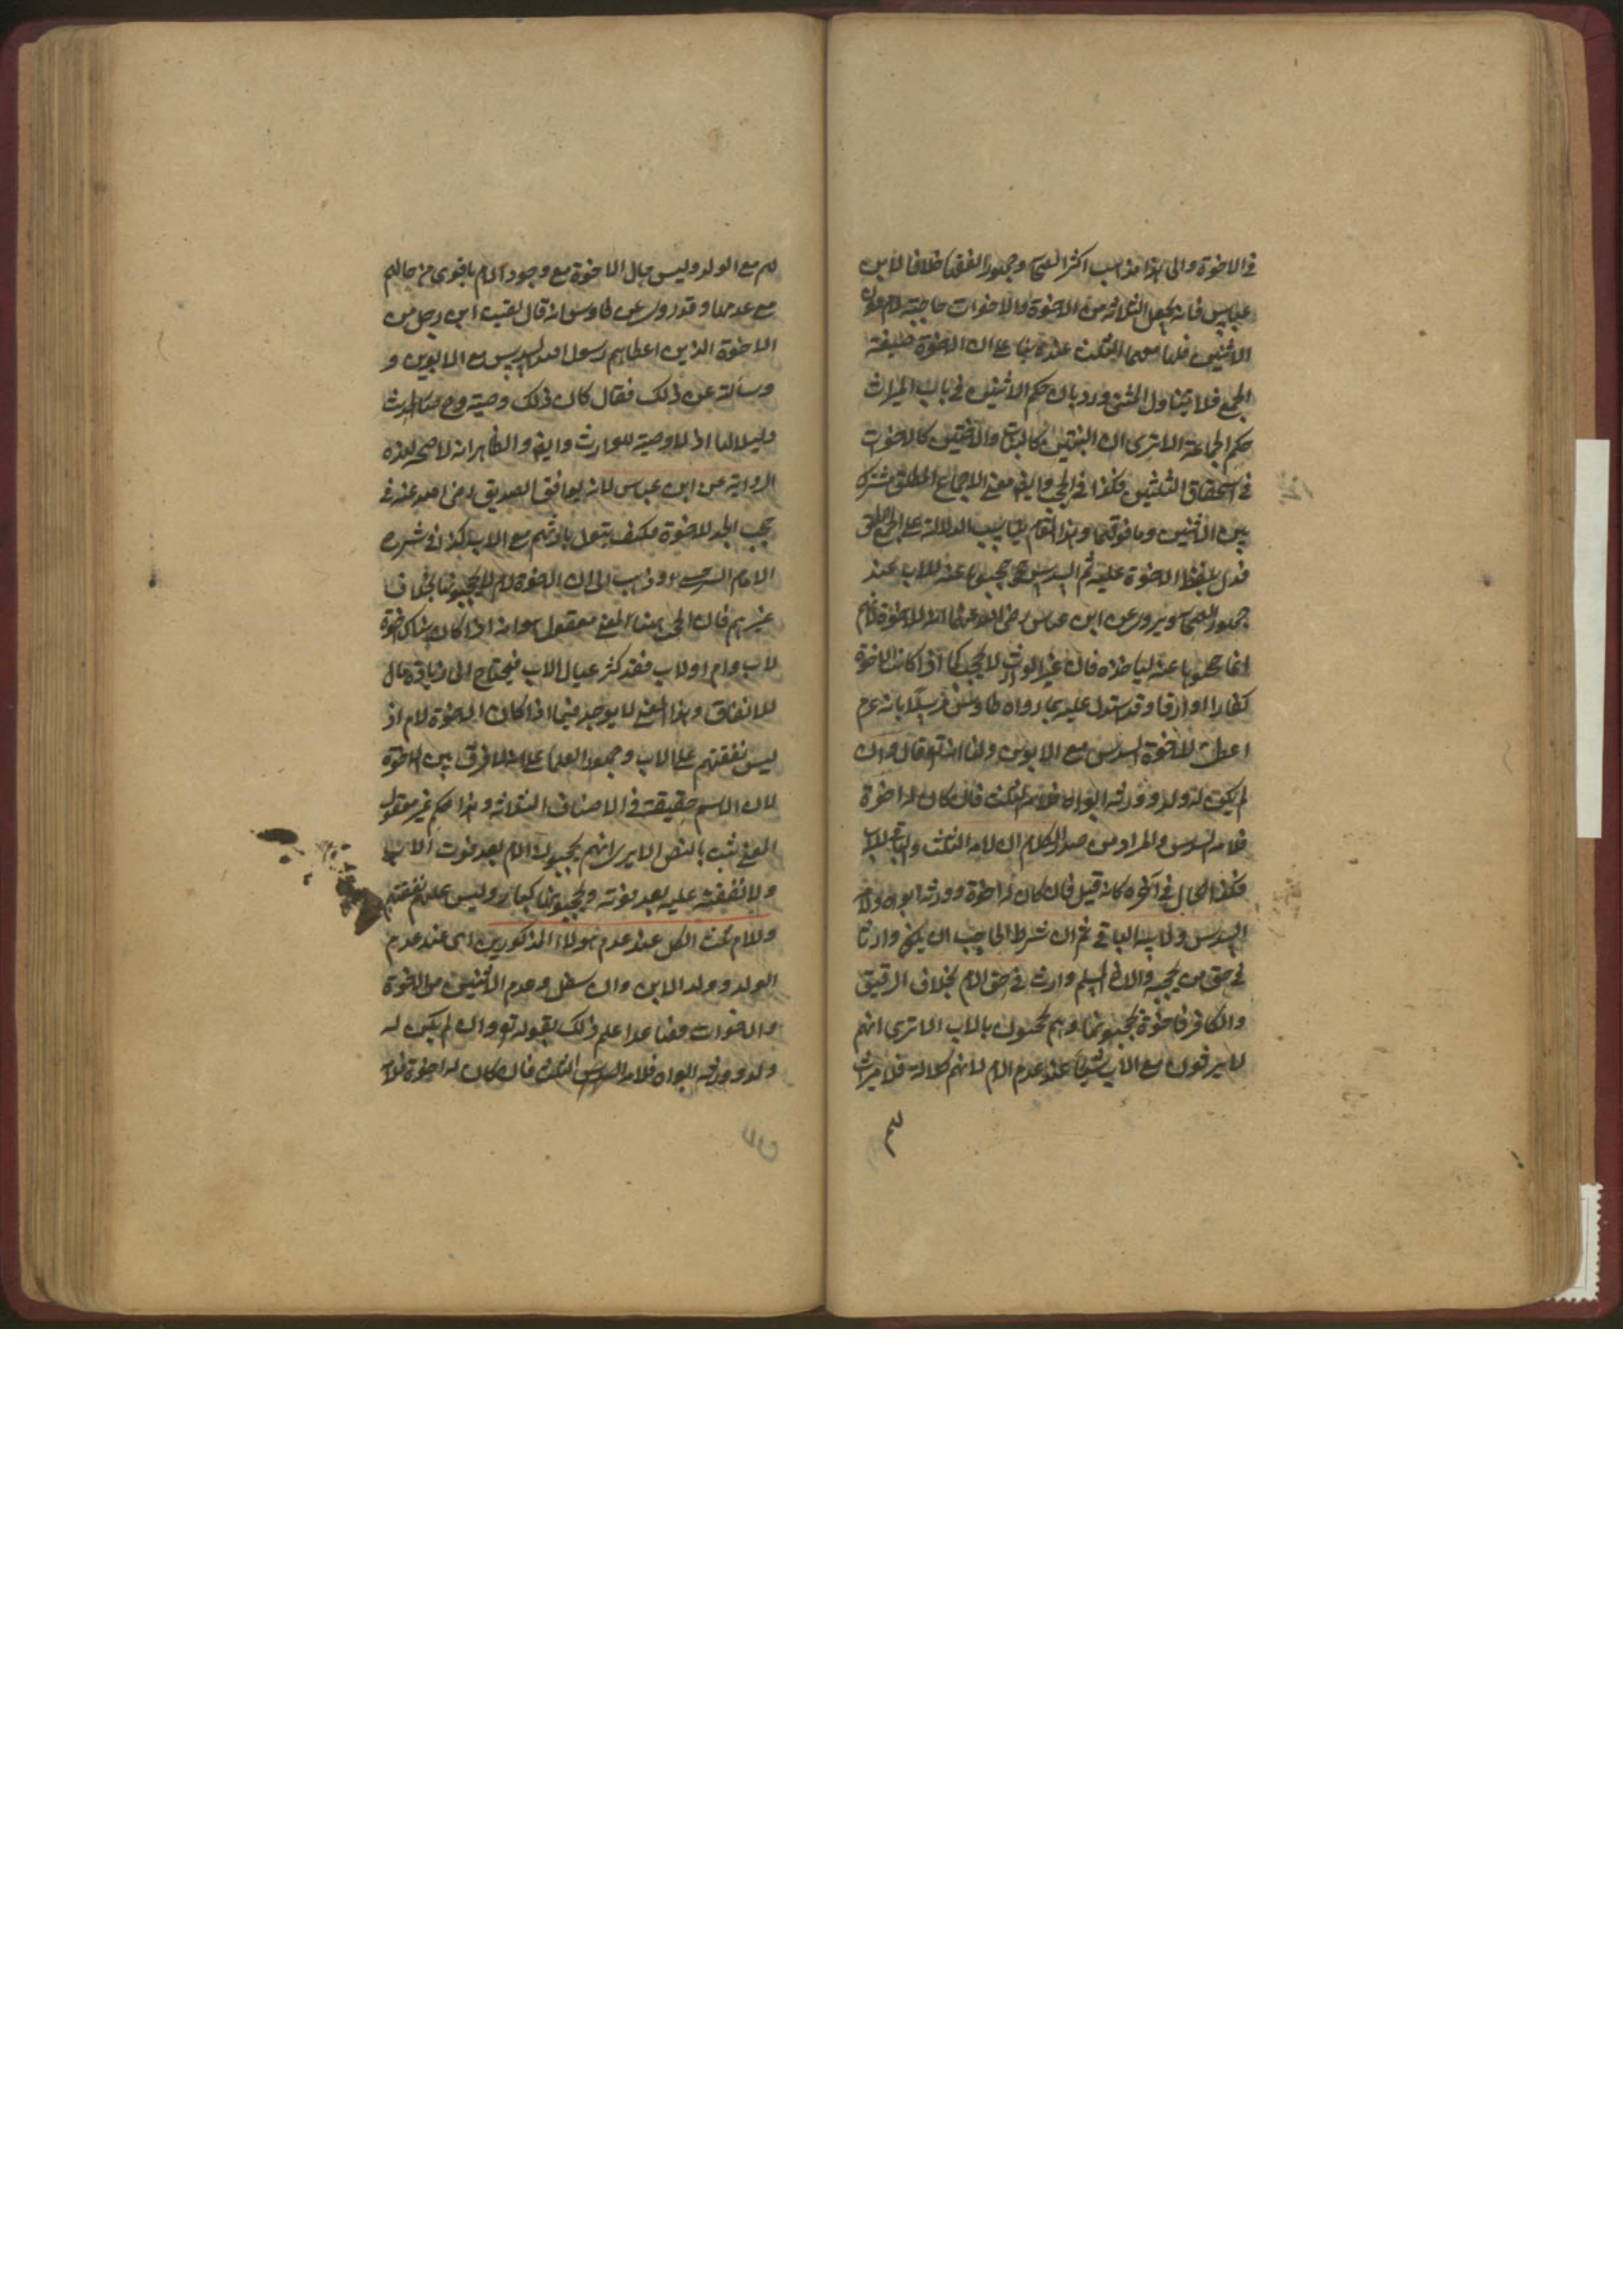 فى الاخوة والى هذا ذهب اكثر الصحابة وجمهور الفقهاء خلافا لابن
عباس فانه يجعل الثلاثة من الاخوة والاخوات حاجبة للام دون
الاثنين فلها معهما الثلث عنده بناء على ان الاخوة صيغة
الجمع فلا يتناول المثنى ورد بان حكم الاثنين فى باب الميراث
حكم الجماعة الا ترى ان البنتين كالبنات والاختين كالاخوات
فى استحقاق الثلثين فكذا فى الحجب وايضا معنى الاجتماع المطلق مشترك
بين الاثنين وما فوقهما وهذا المقام يناسب الدلالة على الجمع المطلق
فدل بلفظ الاخوة عليه ثم السدس الذى حجبوها عنه للاب عند
جمهور الصحابة ويروى عن ابن عباس رضى الله عنهما انه للاخوة لانهم
انما حجبوها عنه لياخذوه فان غير الوارث لا يحجب كما اذا كانت الاخوة
كفارا او ارقا وقد استدل عليه بما رواه طاوس مرسلا بانه عم
اعطى للاخوة السدس مع الابوين ولنا انه تعو قال وان
لم يكن له ولد وورثه ابواه فلامه الثلث فان كان له اخوة
فلامه السدس والمراد من صدر الكلام ان لامه الثلث والباقى للاب
فكذا الحال فى آخره كانه قيل فان كان له اخوة وورثه ابواه فلامه
السدس ولابيه الباقى ثم ان شرط الحاجب ان يكون وارثا
فى حق من يحجبه والاخ المسلم وارث فى حق الام بخلاف الرقيق
والكافر فالاخوة يحجبونها وهم محجوبون بالاب الا ترى انهم
لا يرثون مع الاب شيئا عند عدم الام لانهم كلالة فلا ميراث
لهم
لهم مع الولد وليس حال الاخوة مع وجود الام باقوى من حالهم
مع عدمها وقد روى عن طاوس انه قال لقيت ابن رجل من
الاخوة الذين اعطاهم رسول الله السدس مع الابوين و
وسالته عن ذلك فقال كان ذلك وصية وح صار الحديث
دليلا لنا اذ لا وصية للوارث وايضا والظاهر انه لا صحة لهذه
الرواية عن ابن عباس لانه يوافق الصديق رضى الله عنه فى
حجب الجد للاخوة فكيف يقول بارثهم مع الاب كذا فى شرح
الامام السرخسى وذهب الى ان الاخوة لام لا يحجبونها بخلاف
غيرهم فان الحجب ههنا المعنى معقول هو انه اذا كان هناك اخوة
لاب وام او لاب فقد كثر عيال الاب فيحتاج الى زيادة مال
للانفاق وهذا المعنى لا يوجد فيما اذا كان الاخوة لام اذ
ليس نفقتهم على الاب وجمهور العلماء على انه لا فرق بين الاخوة
لان الاسم حقيقة فى الاصناف الثلاثة وهذا حكم غير معقول
المعنى ثبت بالنص الا يرى انهم يحجبون الام بعد موت الاب
ولا نفقة عليه بعد موته ويحجبونها كبارا وليس عليهم نفقتهم
وللام ثلث الكل عند عدم هؤلاء المذكورين اى عند عدم
الولد وولد الابن وان سفل وعدم الاثنين من الاخوة
والاخوات فصاعدا علم ذلك بقوله تعو وان لم يكن له
ولد وورثه ابواه فلامه السدس الثلث فان كان له اخوة فلامه